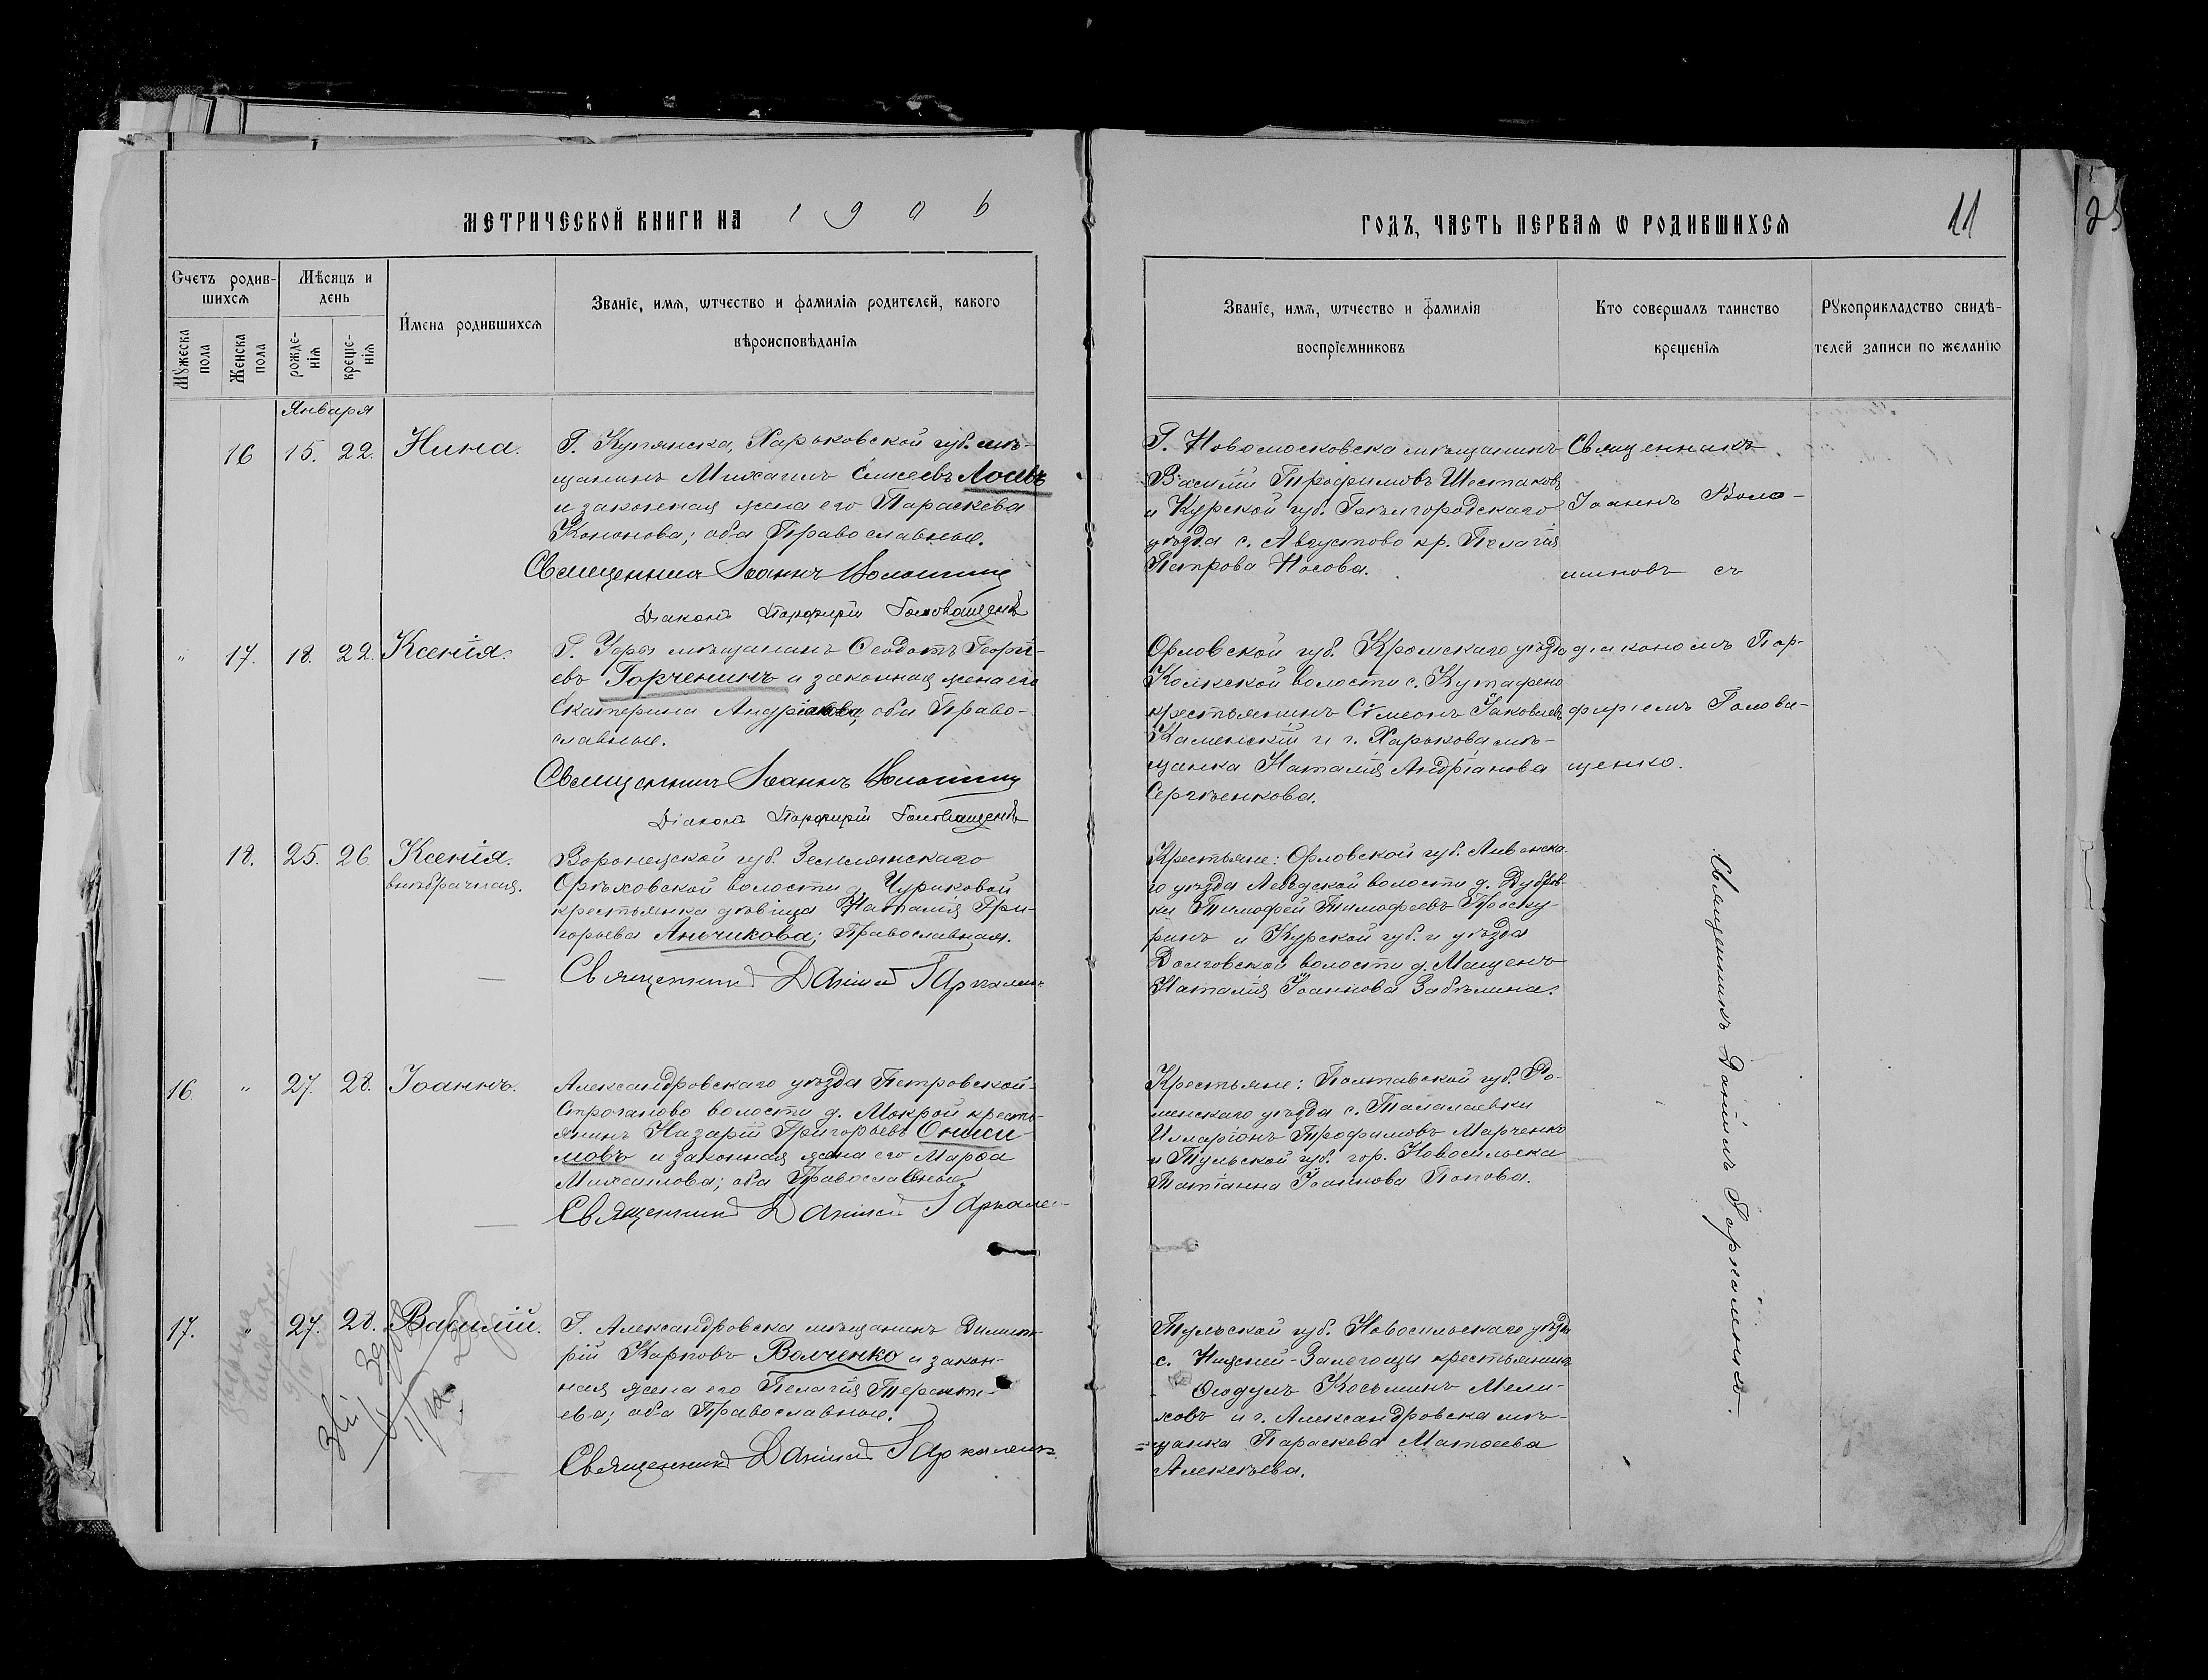 МЕТРИЧЕСКОЙ КНИГИ НА 1906
ГОДЪ, ЧАСТЬ ПЕРВАЯ Ѡ РОДИВШИХСЯ
11
25
Счетъ родив-
шихся
Мѣсяцъ и
день
Мужеска
пола
Женска
пола
рожде-
нія
креще-
нія
Имена родившихся
Званіе, имя, ѡтчество и фамилія родителей, какого
вѣроисповѣданія
Званіе, имя, ѡтчество и фамилія
воспріемниковъ
Кто совершалъ таинство
крещенія
Рукоприкладство свидѣ-
телей записи по желанію
Января
16 15. 22. Нина.
Г. Купянска, Харьковской губ. мѣ-
щанинъ Михаилъ Елисеевъ Лосевъ
и законная жена его Параскева
Кононова; оба Православные.
Священникъ Іоаннъ
Діаконъ Порфирій Головащенко
Г. Новомосковска мѣщанинъ
Василій Трофимовъ Шестаковъ
и Курской губ. Бѣлгородскаго
уѣзда с. Августово кр. Пелагія
Петрова Носова.
Священникъ
Іоаннъ Воло-
шиновъ съ
" 17. 18. 22. Ксенія.
Г. мѣщанинъ Ѳеодотъ Георгі-
евъ Горченинъ и законная жена его
Екатерина оба Право-
славные.
Священникъ Іоаннъ
Діаконъ Порфирій Головащенко
Орловской губ. Кромскаго уѣзда
волости с.
крестьянинъ Сѵмеонъ Іаковлевъ
Каменскій и г. Харькова мѣ-
щанка Наталія Андріанова
Сергѣенкова.
діакономъ Пор-
фиріемъ Голова-
щенко.
18. 25. 26. Ксенія.
внѣбрачная.
Воронежской губ. Землянскаго
Орѣховской волости д. Чуриковой
крестьянка дѣвица Наталія Гри-
горьева Аньчикова; Православная.
Священникъ Даніилъ
Крестьяне: Орловской губ. Ливенска-
го уѣзда волости д. Дубров-
ки Тимофей Тимофеевъ Проску-
ринъ и Курской губ. и уѣзда
Долговской волости д. Мащенъ
Наталія Іоаннова Забѣлина.
Священникъ Даніилъ
16. " 27. 28. Іоаннъ.
Александровскаго уѣзда Петровской-
волости д. Мокрой кресть-
янинъ Назарій Григорьевъ Ониси-
мовъ и законная жена его Марѳа
Михаилова; оба Православные.
Священникъ Даніилъ
Крестьяне: Полтавской губ. Ро-
менскаго уѣзда с. Талалаевки
Илларіонъ Трофимовъ Марченко
и Тульской губ. гор. Новосильска
Татіанна Іоаннова Попова.
17. " 27. 28. Василій.
Г. Александровска мѣщанинъ Димит-
рій Карповъ Волченко и закон-
ная жена его Пелагія Теренті-
ева; оба Православные.
Священникъ Даніилъ
Тульской губ. Новосильскаго уѣзда
с. Нижней-Залегощи крестьянинъ
Ѳеодулъ Косьминъ Мели-
ховъ и г. Александровска мѣ-
щанка Параскева Матѳеева
Алексѣева.